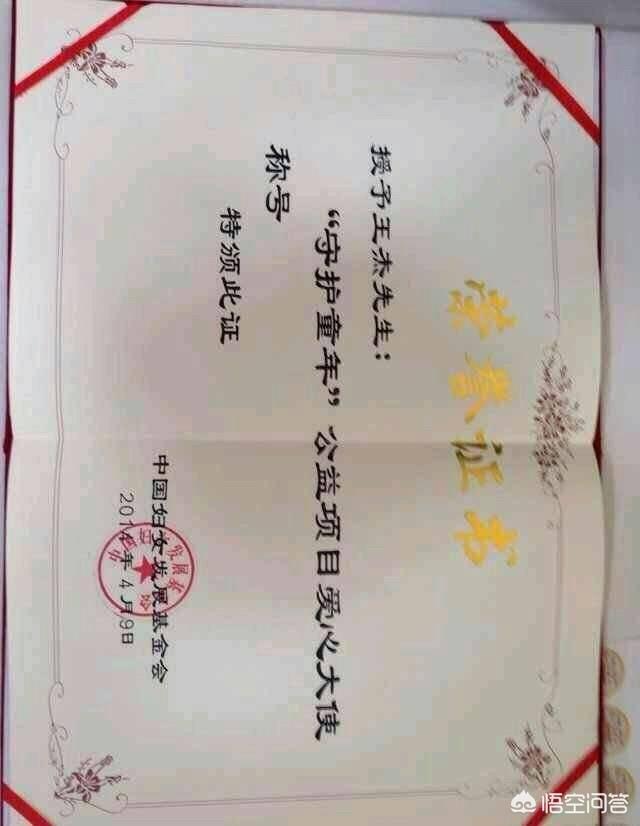 荣誉证书
授予王杰先生：
“守护童年”公益项目爱心大使
称号
特颁此证
中国妇女发展基金会
2014年4月9日
悟空问答